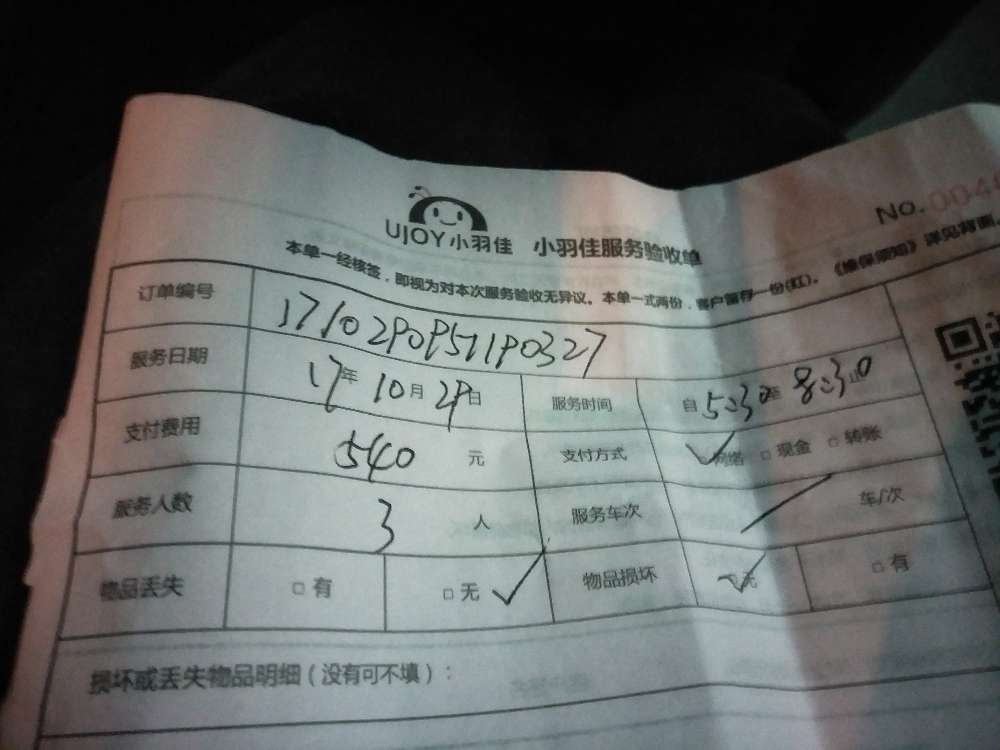 UJOY小羽佳 小羽佳服务验收单
No. 004
本单一经核签，即视为对本次服务验收无异议。本单一式两份，客户留存一份(红)。《维保须知》详见背面。
订单编号 17102909571190327
服务日期 17年 10月 29日 服务时间 自 5:30 至 8:30 止
支付费用 540 元 支付方式 □网络 □现金 □转账
服务人数 3 人 服务车次 车/次
物品丢失 □有 □无 ✓ 物品损坏 □无 □有
损坏或丢失物品明细（没有可不填）：